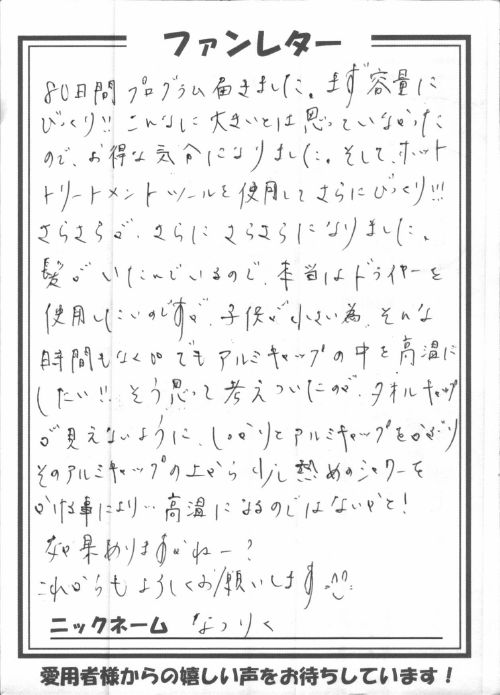 ファンレター
80日間プログラム届きました。まず容量に
びっくり!!こんなに大きいとは思っていなかった
ので、お得な気分になりました。そして、ホット
トリートメントツールを使用してさらにびっくり!!!
さらさらが、さらにさらさらになりました。
髪がいたんでいるので、本当はドライヤーを
使用したいのですが、子供が小さい為、そんな
時間もなく。。でもアルミキャップの中を高温に
したい!!そう思って考えついたのが、タオルキャップ
が見えないように、しっかりとアルミキャップをかぶり
そのアルミキャップの上から少し熱めのシャワーを
かける事により…高温になるのではないかと!
効果ありますかねー?
これからもよろしくお願いします^^
ニックネーム なつりく
愛用者様からの嬉しい声をお待ちしています!